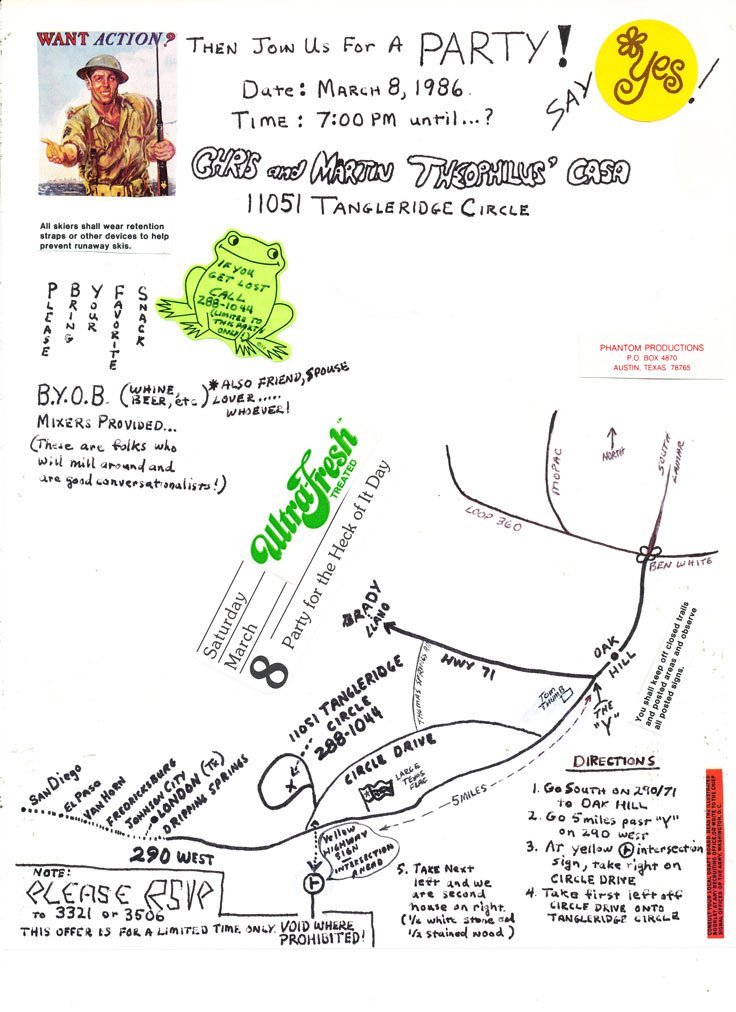 WANT ACTION?
THEN JOIN US FOR A PARTY!
DATE: MARCH 8, 1986.
TIME: 7:00 PM until...?
SAY Yes!
CHRIS and MARTIN THEOPHILUS' CASA
11051 TANGLERIDGE CIRCLE
All skiers shall wear retention
straps or other devices to help
prevent runaway skis.
IF YOU
GET LOST
CALL
288-1044
(LIMITED TO
THIS PARTY
ONLY!)
PLEASE
BRING
YOUR
FAVORITE
SNACK
PHANTOM PRODUCTIONS
P.O. BOX 4870
AUSTIN, TEXAS 78765
B.Y.O.B. (WHINE,
BEER, etc)
*ALSO FRIEND, SPOUSE
LOVER.....
WHOEVER!
MIXERS PROVIDED...
(These are folks who
will mill around and
are good conversationalists!)
Ultra-Fresh™
TREATED
Saturday
March
8
Party for the Heck of It Day
MOPAC
NORTH
SOUTH
LAMAR
LOOP 360
BEN WHITE
BRADY
LLANO
HWY 71
OAK
HILL
You shall keep off closed trails
and posted areas and observe
all posted signs.
THOMAS SPRINGS RD
TOM
THUMB
THE
"Y"
11051 TANGLERIDGE
CIRCLE
288-1044
CIRCLE DRIVE
LARGE
TEXAS
FLAG
5 MILES
San Diego
EL PASO
VAN HORN
FREDERICKSBURG
JOHNSON CITY
LONDON (TX)
DRIPPING SPRINGS
290 WEST
Yellow
HIGHWAY
SIGN
INTERSECTION
AHEAD
DIRECTIONS
1. Go South on 290/71
to OAK HILL
2. Go 5 miles past "Y"
on 290 west
3. AT yellow intersection
sign, take right on
CIRCLE DRIVE
4. Take first left off
CIRCLE DRIVE onto
TANGLERIDGE CIRCLE
5. TAKE Next
left and we
are second
house on right.
(½ white stone and
½ stained wood)
NOTE:
PLEASE RSVP
TO 3321 or 3506
THIS OFFER IS FOR A LIMITED TIME ONLY.
VOID WHERE
PROHIBITED!